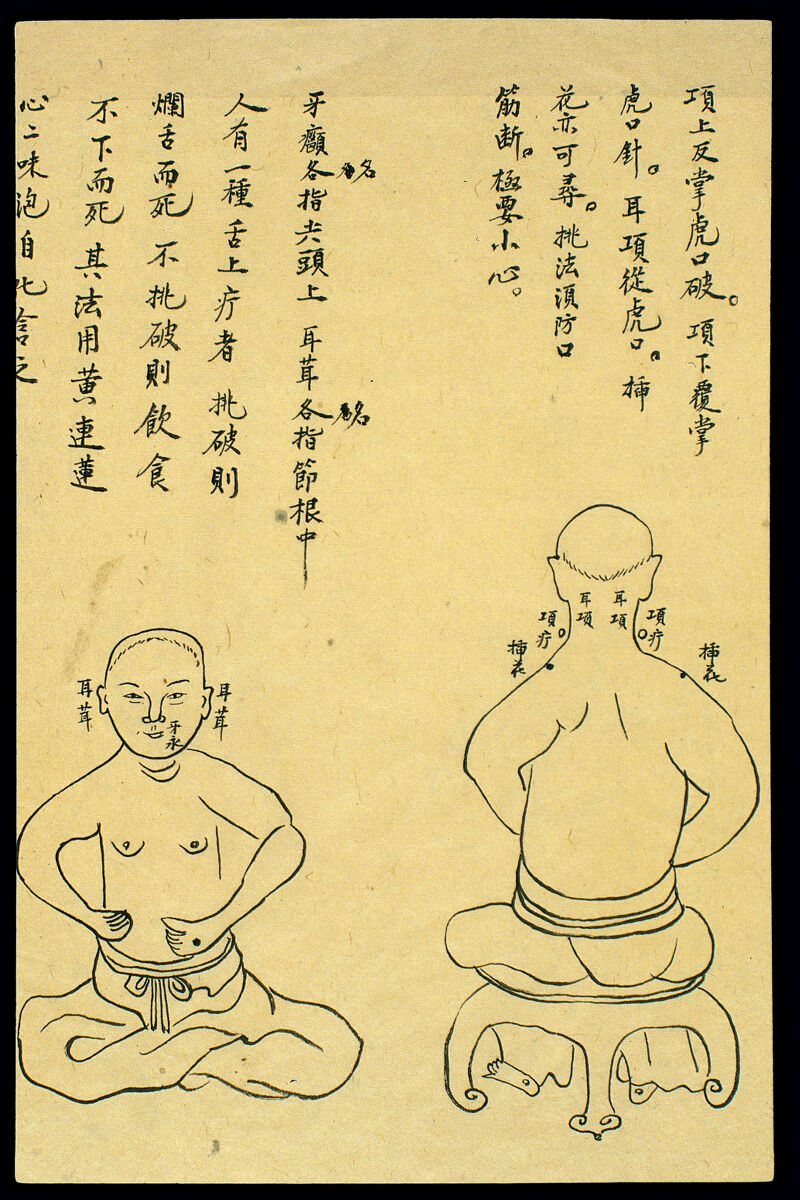 項上反掌虎口破。項下覆掌
虎口針。耳項從虎口。插
花亦可尋。挑法須防口
筋断。極要小心。
牙癰各指尖頭上 耳茸各指節根中
名
名
人有一種舌上疔者 挑破則
爛舌而死 不挑破則飲食
不下而死 其法用黄連蓮
心二味泡自化含之
耳項
耳項
項疔
項疔
插花
插花
耳茸
耳茸
牙永